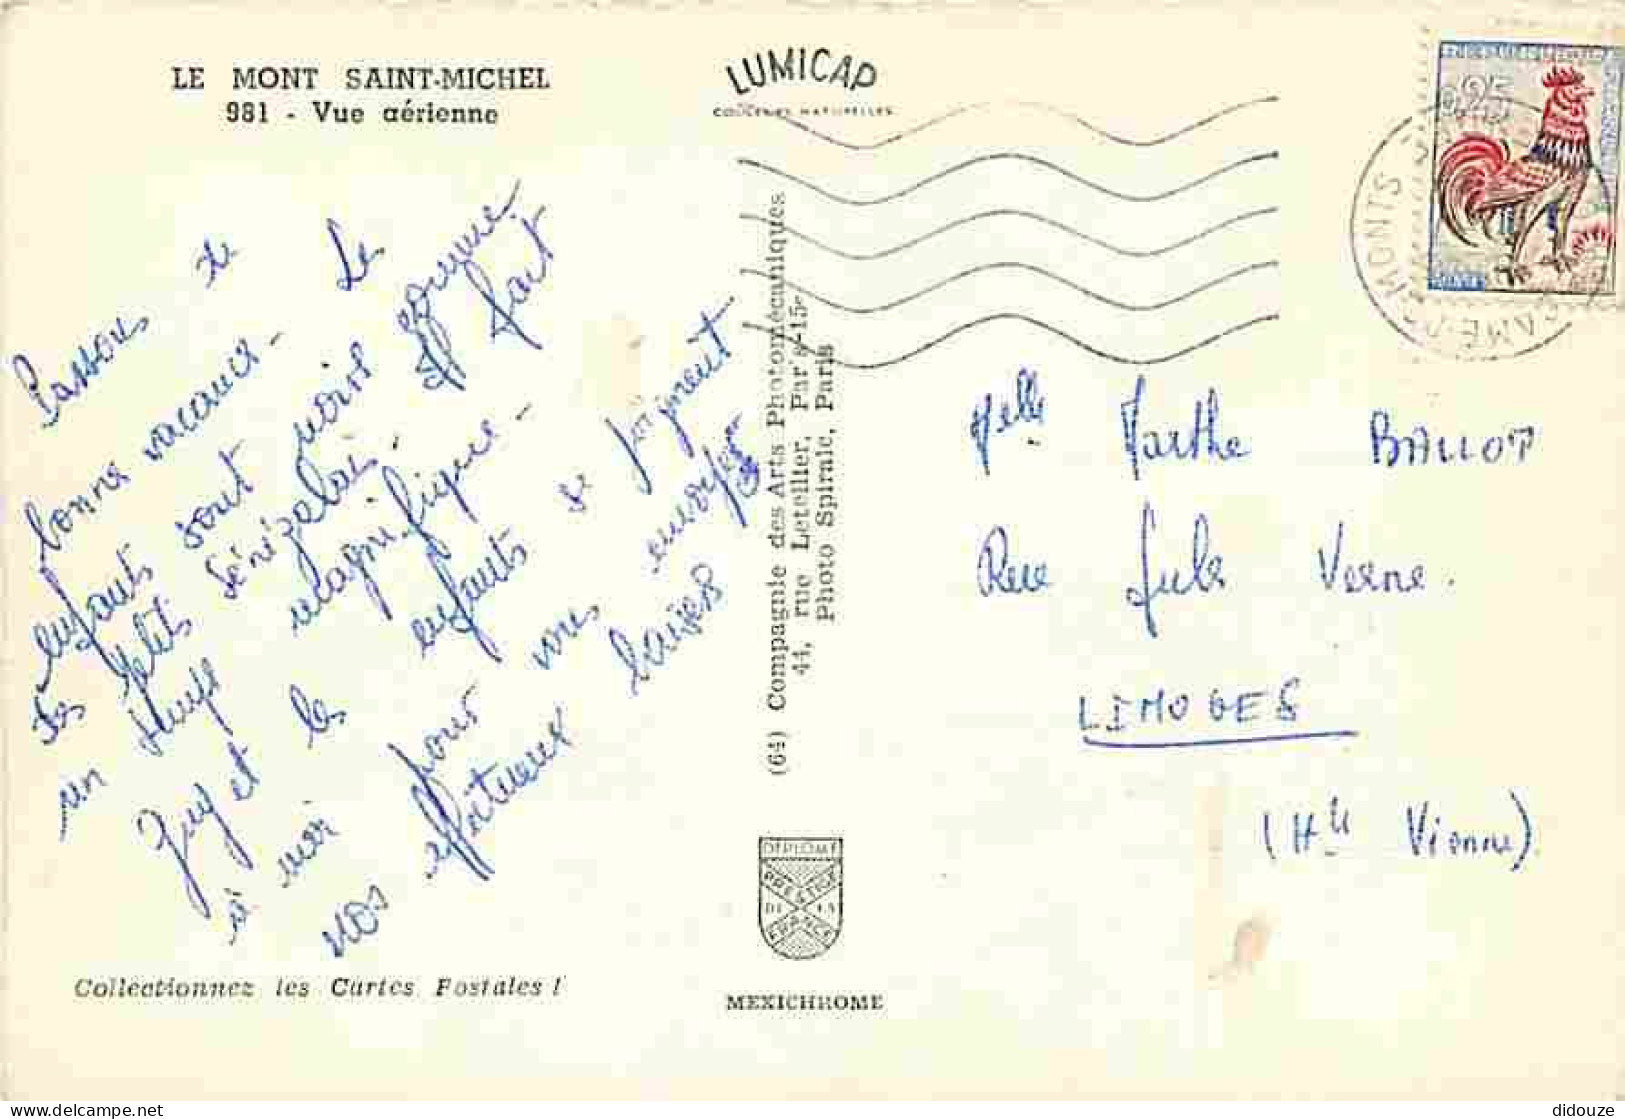 LE MONT SAINT-MICHEL
981 - Vue aérienne
LUMICAP
COULEURS NATURELLES
0,25
MONTS
Passons de
bonnes vacances - Le
enfants sont noirs comme
des petits Sénégalais. Il fait
un temps magnifique -
Guy et les enfants se joignent
à moi pour vous envoyer
nos affectueux baisers
Melle Marthe BALLOT
Rue Jules Verne.
LIMOGES
(Hte Vienne)
(64) Compagnie des Arts Photomécaniques
44, rue Letellier, Paris-15e
Photo Spirale, Paris
DIPLOME
PRESTIGE
DE LA
FRANCE
MEXICHROME
Collectionnez les Cartes Postales !
didouze
delcampe.net